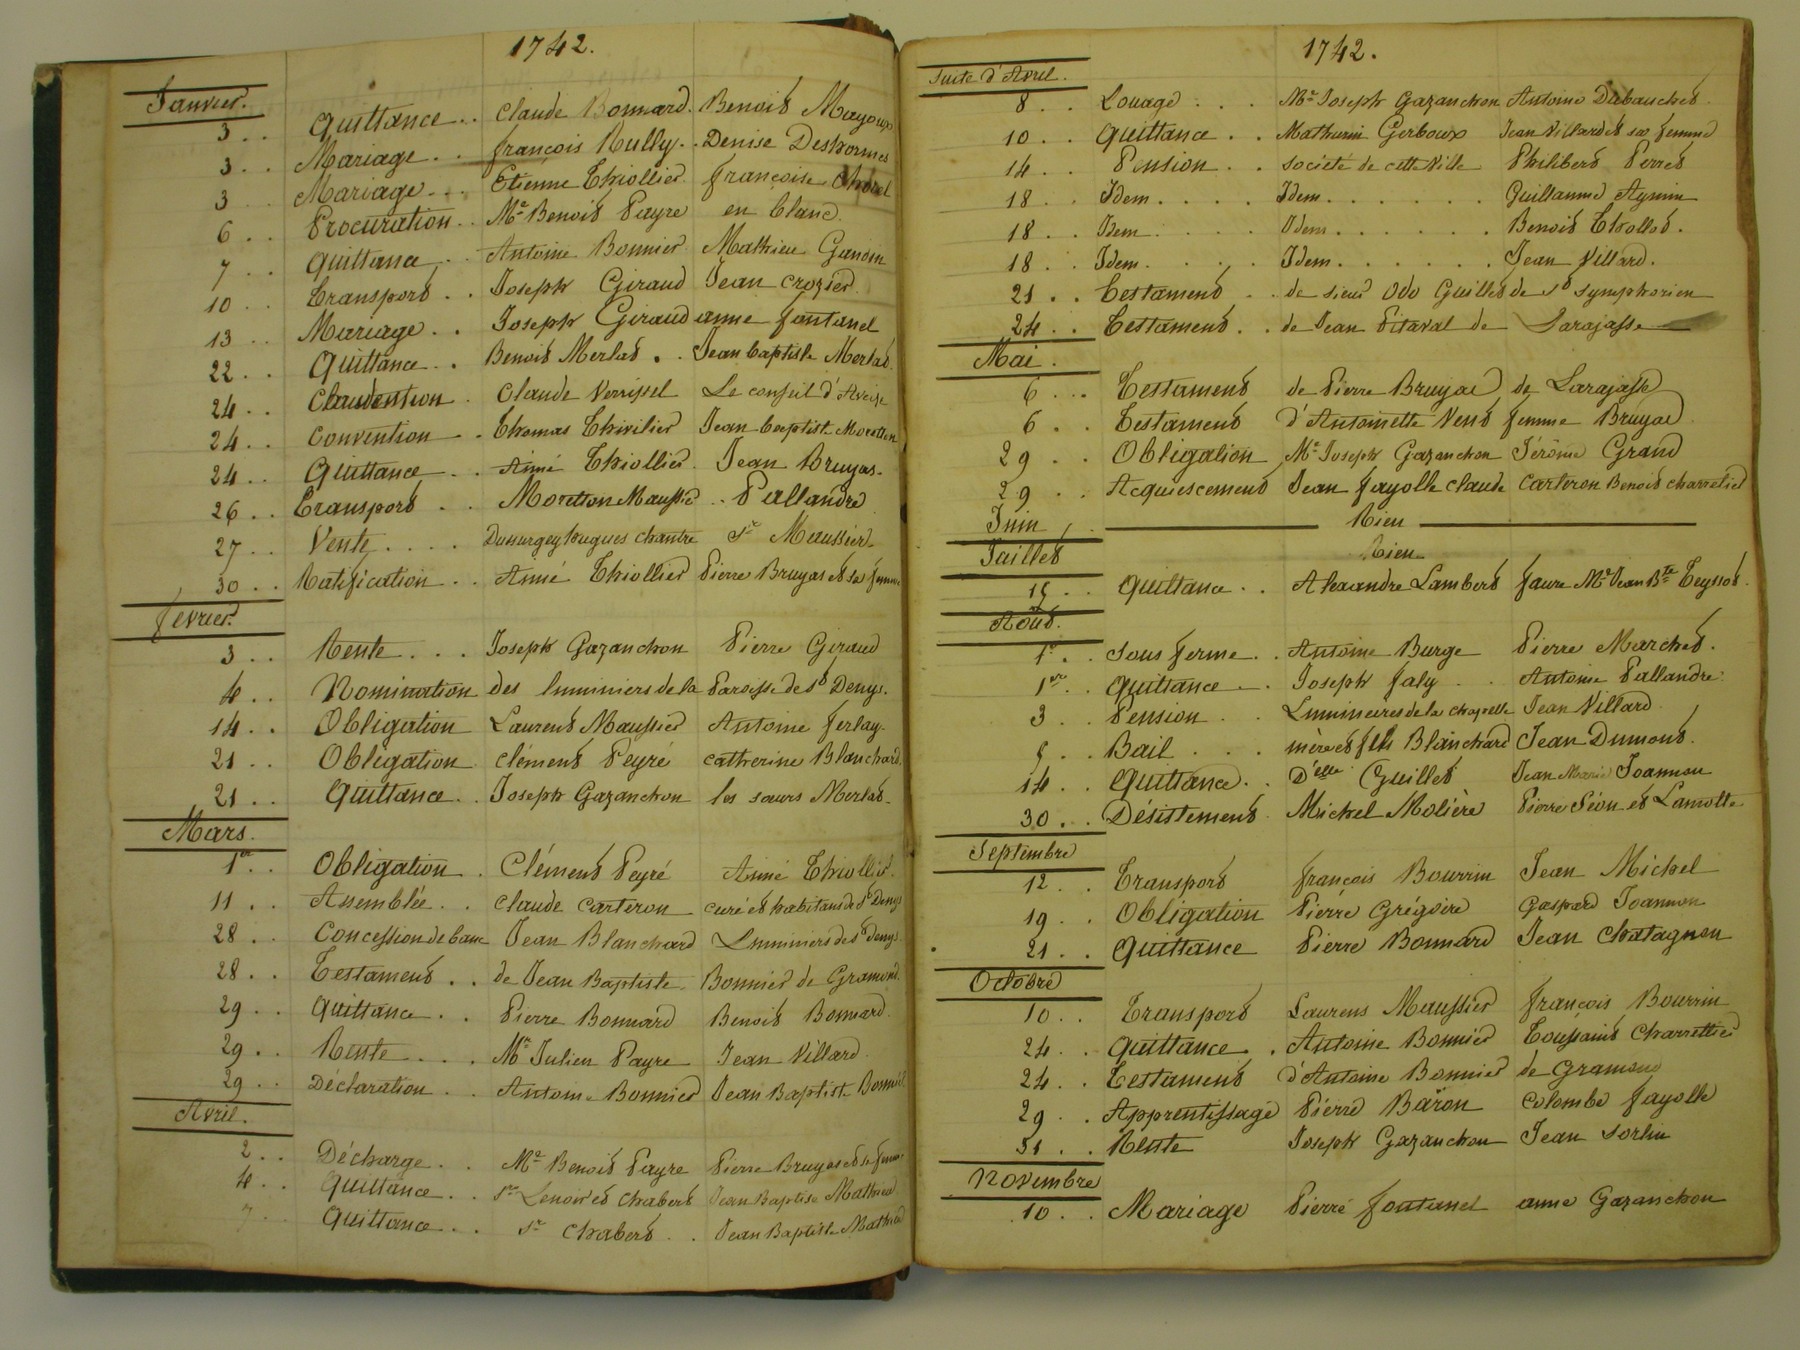 1742.
Janvier.
3 . . Quittance . . Claude Bonnard . Benoit Mayoux
3 . . Mariage . . françois Rully . . Denise Deshormes
3 . . Mariage . . Etienne Thiollier françoise
6 . . Procuration . . Me Benoit Payre en blanc
7 . . Quittance . . Antoine Bonnier Mathieu
10 . . Transport . . Joseph Giraud Jean Crozier
13 . . Mariage . . Joseph Giraud anne fontanel
22 . . Quittance . . Benoit Merlat . . Jean baptiste Merlat
24 . . Claude Le conseil d'Aveize
24 . . Convention . . Thomas Jean baptiste
24 . . Quittance . . Aimé Thiollier Jean Bruyas
26 . . Transport . . Moretton Maussier . . Pallandre
27 . . Vente . . . . Dussurgey hugues chantre Sr Maussier
30 . . Ratification . . Aimé Thiollier Pierre Bruyas et sa femme
fevrier
3 . . Vente . . . Joseph Gazanchon Pierre Giraud
4 . . Nomination des luminiers de la Paroisse de St Denys.
14 . . Obligation Laurent Maussier Antoine ferlay
21 . . Obligation clément Peyré catherine Blanchard
21 . . Quittance . . Joseph Gazanchon les sœurs Merlat
Mars.
1er . . Obligation . Clément Peyré Aimé Thiollier
11 . . Assemblée . . Claude Carteron curé et habitans de St Denys
28 . . Concession de banc Jean Blanchard Luminiers de St Denys
28 . . Testament . . de Jean Baptiste Bonnier de Gramond
29 . . Quittance . . Pierre Bonnard Benoit Bonnard
29 . . Vente . . . Me Julien Payre Jean Villard
29 . . Déclaration . . Antoine Bonnier Jean Baptiste Bonnier
Avril.
2 . . Décharge . . Me Benoit Payre Pierre Bruyas et sa femme
4 . . Quittance . . Sr Lenoir et Chabert Jean Baptiste Mathieu
7 . . Quittance . . Sr Chabert . . Jean Baptiste Mathieu
1742.
Suite d'Avril.
8 . . Louage . . . Me Joseph Gazanchon Antoine Dubanchet
10 . . Quittance . . Mathurin Gerboux Jean Villard et sa femme
14 . . Pension . . société de cette Ville Philibert Perret
18 . . Idem . . . . Idem . . . . . . Guillaume
18 . . Idem . . . . Idem . . . . . . Benoit Thollot.
18 . . Idem . . . . Idem . . . . . . Jean Villard.
21 . . Testament . . de sieur Odo Guillet de St symphorien
24 . . Testament . . de Jean Pitaval de Larajasse
Mai.
6 . . . Testament de Pierre Bruyas de Larajasse
6 . . Testament d'Antoinette Vent femme Bruyas
29 . . Obligation Me Joseph Gazanchon Jérôme Grand
29 . . Acquiescement Jean fayolle claude Carteron Benoit charretier
Juin Rien
Juillet Rien
15 . . Quittance . . Alexandre Lambert faure Me Jean Bte Teyssot.
Août.
1er . . Sous ferme . . Antoine Burge Pierre Marchet.
1er . . Quittance . . Joseph faly . . Antoine Pallandre
3 . . Pension . . Luminieres de la chapelle Jean Villard
5 . . Bail . . . mère et fils Blanchard Jean Dumont.
14 . . Quittance . . Delle Guillet Jean Marie Joannon
30 . . Désistement Michel Molière Pierre Séon et Lamotte
Septembre
12 . . Transport françois Bourrin Jean Michel
19 . . Obligation Pierre Grégoire Gaspard Joannon
21 . . Quittance Pierre Bonnard Jean Chatagnon
Octobre
10 . . Transport Laurens Maussier françois Bourrin
24 . . Quittance . . Antoine Bonnier Toussaint Charrettier
24 . . Testament d'Antoine Bonnier de Gramond
29 . . Apprentissage Pierre Baron Colombe fayolle
31 . . Vente Joseph Gazanchon Jean Sorlin
Novembre
10 . . Mariage Pierre fontanel anne Gazanchon